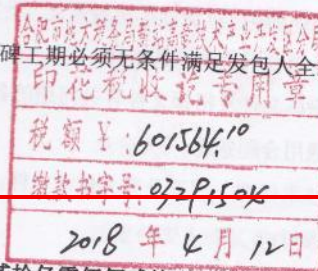 合肥市地方税务局新站高新技术产业开发区分局
碑工期必须无条件满足发包人全
印花税收讫专用章
税额¥:601564.10
缴款书字号:
2018年4月12日